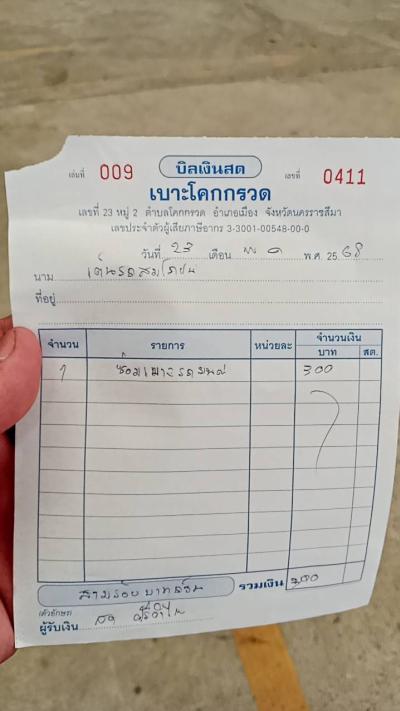 เล่มที่ 009 บิลเงินสด เลขที่ 0411
เบาะโคกกรวด
เลขที่ 23 หมู่ 2 ตำบลโคกกรวด อำเภอเมือง จังหวัดนครราชสีมา
เลขประจำตัวผู้เสียภาษีอากร 3-3001-00548-00-0
วันที่ 23 เดือน พ.ค พ.ศ. 25 68
นาม
ที่อยู่
จำนวน รายการ หน่วยละ จำนวนเงิน
บาท สต.
1 ซ่อมเบาะรถยนต์ 300
สามร้อยบาทถ้วน รวมเงิน 300
(ตัวอักษร)
ผู้รับเงิน